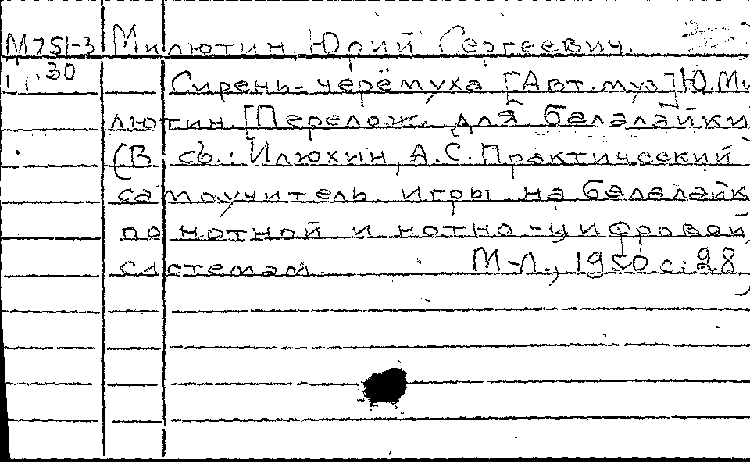 М751-3 Милютин, Юрий Сергеевич.
11.30 Сирень-черёмуха [Авт. муз.] Ю. Ми
лютин [Перелож. для балалайки
(В сб.: Илюхин, А.С. Практический
самоучитель игры на балалайк
по нотной и нотно-цифровой
системам М-Л., 1950 с. 28